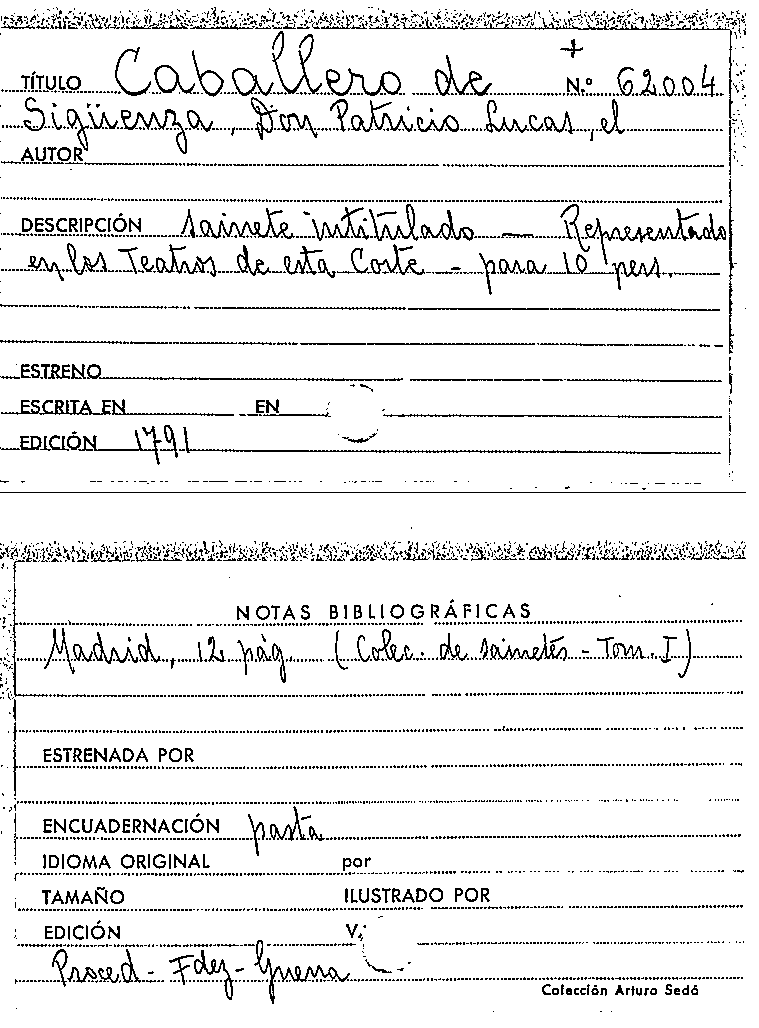 +
TÍTULO Caballero de N.º 62004
Sigüenza, Don Patricio Lucas, el
AUTOR
DESCRIPCIÓN Sainete intitulado — Representado
en los Teatros de esta Corte - para 10 pers.
ESTRENO
ESCRITA EN EN
EDICIÓN 1791
NOTAS BIBLIOGRÁFICAS
Madrid, 12 pág. (Colec. de sainetes - Tom. I)
ESTRENADA POR
ENCUADERNACIÓN pasta
IDIOMA ORIGINAL por
TAMAÑO ILUSTRADO POR
EDICIÓN V.
Proced - Fdez - Guerra
Colección Arturo Sedó